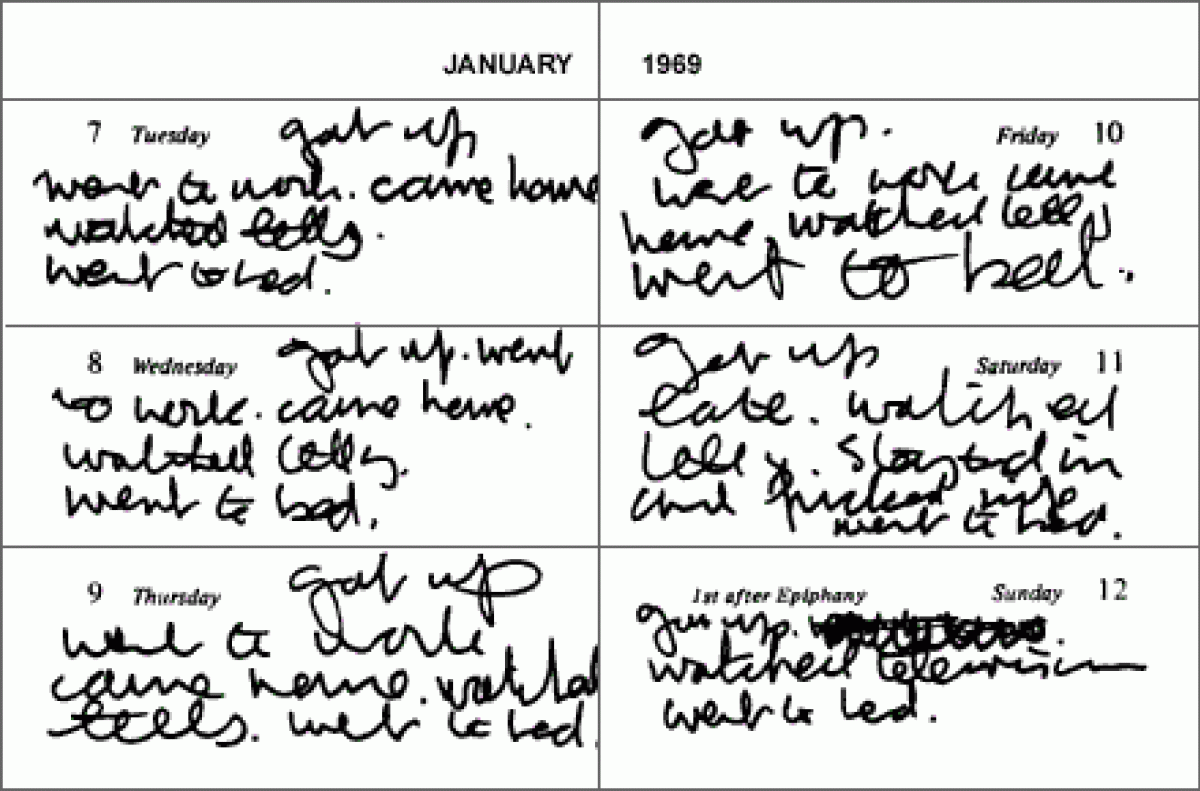 JANUARY
7 Tuesday got up
went to work. came home
watched telly.
went to bed.
8 Wednesday got up. went
to work. came home.
watched telly.
went to bed.
9 Thursday got up
went to work
came home. watched
telly. went to bed.
1969
got up. Friday 10
went to work came
home, watched telly
went to bed.
got up Saturday 11
late. watched
telly. Stayed in
and wife
went to bed.
1st after Epiphany Sunday 12
got up.
watched television
went to bed.